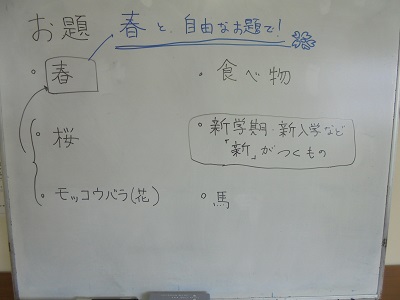 お題
春と、自由なお題で!
・春
・食べ物
・桜
・新学期・新入学など
「新」がつくもの
・モッコウバラ(花)
・馬